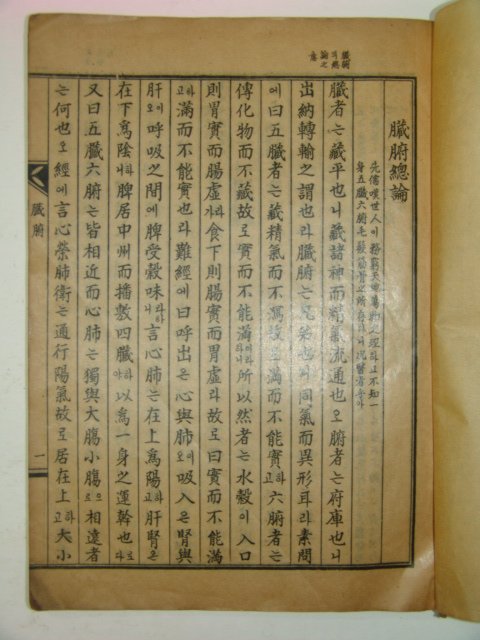 臟腑總論
臟者는藏平也니藏諸神而精氣流通也오腑者는府庫也니
出納轉輸之謂也라臟腑는兄弟也니同氣而異形耳라素問
에曰五臟者는藏精氣而不瀉故로滿而不能實하고六腑者는
傳化物而不藏故로實而不能滿이라하니所以然者는水穀이入口
則胃實而腸虛라가食下則腸實而胃虛라故로曰實而不能滿
하고滿而不能實也라難經에曰呼出은心與肺오吸入은腎與
肝이오呼吸之間에脾受穀味니라하니言心肺는在上爲陽하고肝腎은
在下爲陰하니脾居中州而播敷四臟하야以爲一身之運幹也로다
又曰五臟六腑는皆相近而心肺는獨與大腸小腸으로相遠者
는何也오經에言心榮肺衛는通行陽氣故로居在上하고大小
臟腑
一